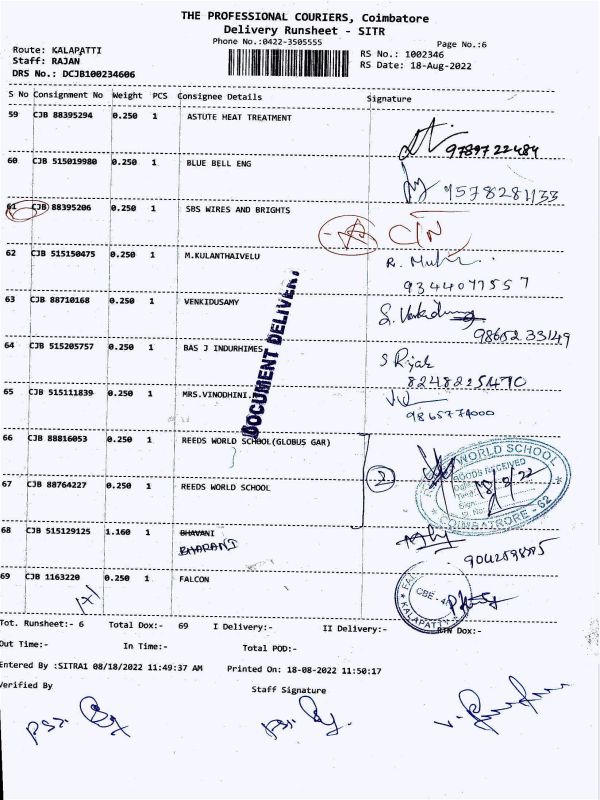 THE PROFESSIONAL COURIERS, Coimbatore
Delivery Runsheet - SITR
Phone No.:0422-3505555
Page No.:6
Route: KALAPATTI
Staff: RAJAN
DRS No.: DCJB100234606
RS No.: 1002346
RS Date: 18-Aug-2022
S No Consignment No Weight PCS Consignee Details Signature
59 CJB 88395294 0.250 1 ASTUTE HEAT TREATMENT
9789722484
60 CJB 515019980 0.250 1 BLUE BELL ENG
9578281133
61 CJB 88395206 0.250 1 SBS WIRES AND BRIGHTS
C/N
62 CJB 515150475 0.250 1 M.KULANTHAIVELU
9344077557
63 CJB 88710168 0.250 1 VENKIDUSAMY
9865233149
64 CJB 515205757 0.250 1 BAS J INDURHIMES
65 CJB 515111839 0.250 1 MRS.VINODHINI.
9865774000
DOCUMENT DELIVERY
66 CJB 88816053 0.250 1 REEDS WORLD SCHOOL(GLOBUS GAR)
67 CJB 88764227 0.250 1 REEDS WORLD SCHOOL
2
WORLD SCHOOL
GOODS RECEIVED
18/8/22
COIMBATRORE - 62
68 CJB 515129125 1.160 1 BHAVANI
BHARANI
69 CJB 1163220 0.250 1 FALCON
CBE - 4
KALAPATTY
Tot. Runsheet:- 6 Total Dox:- 69 I Delivery:- II Delivery:- RTN Dox:-
Out Time:- In Time:- Total POD:-
Entered By :SITRA1 08/18/2022 11:49:37 AM Printed On: 18-08-2022 11:50:17
Verified By Staff Signature